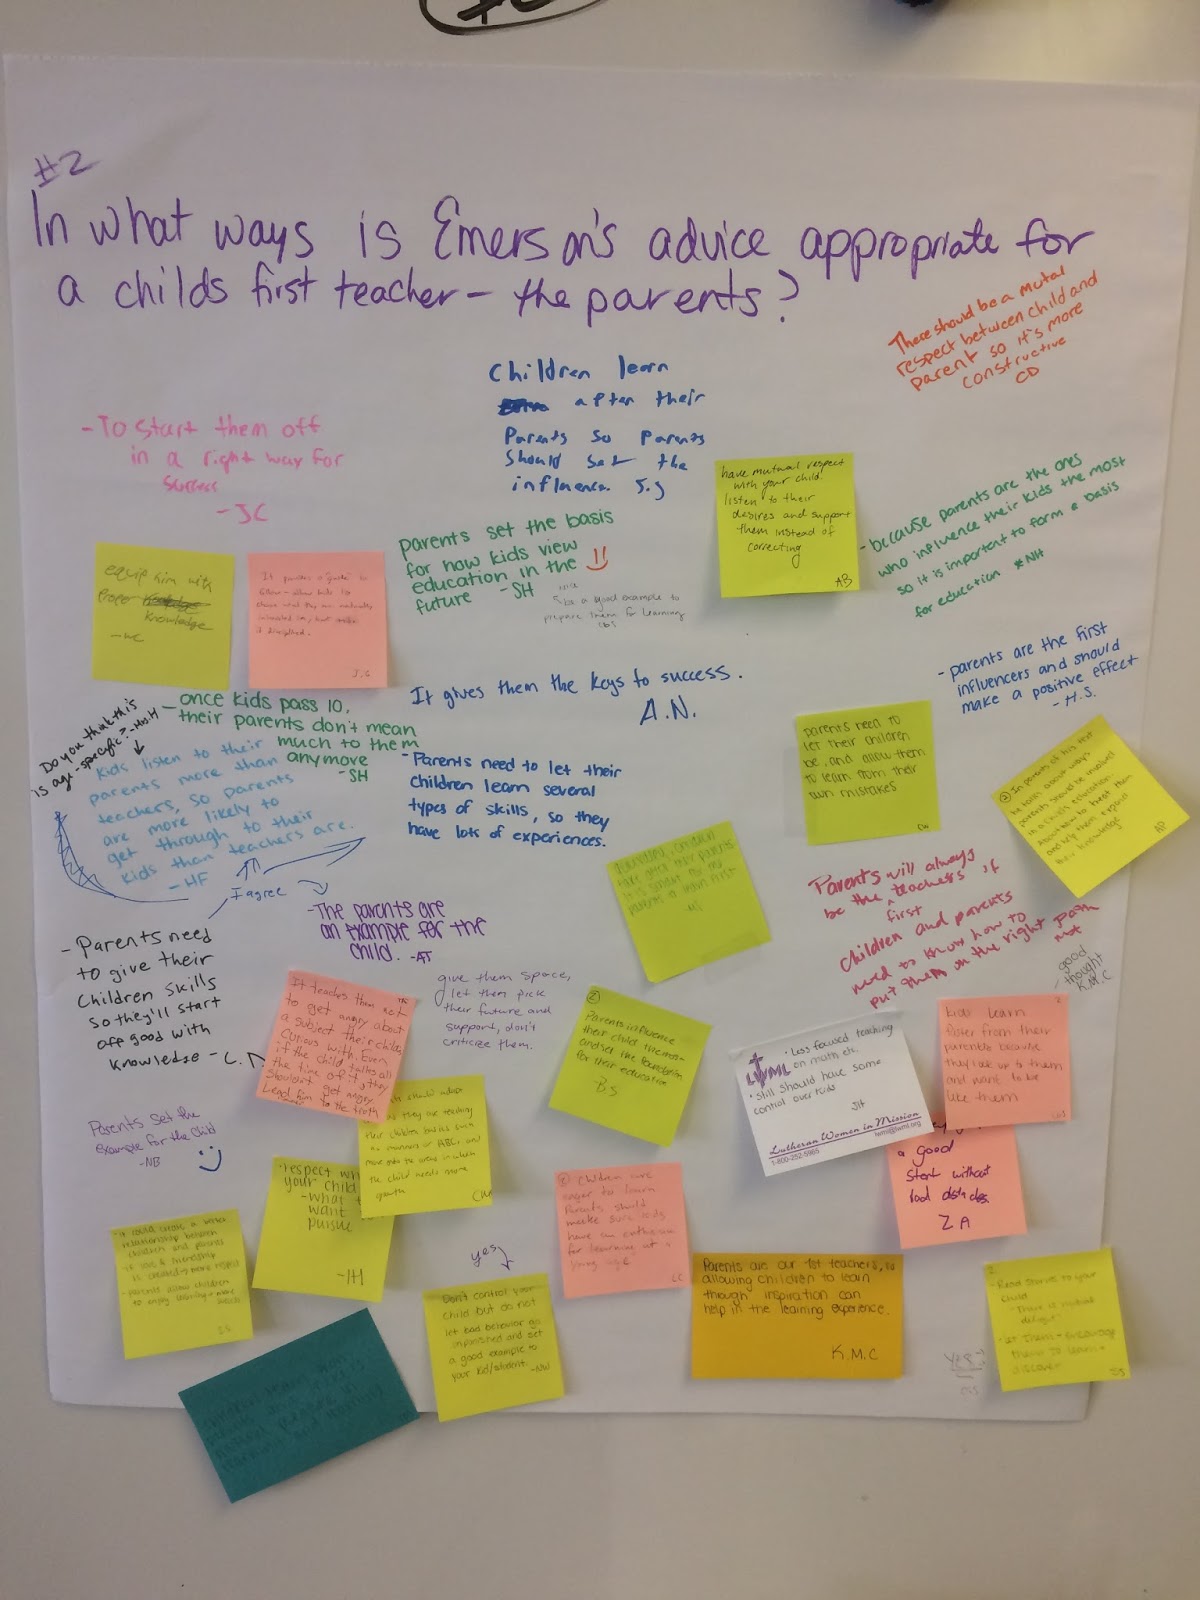 #2
In what ways is Emerson's advice appropriate for
a childs first teacher - the parents?
There should be a mutal
respect between child and
parent so it's more
constructive
CD
Children learn
after their
Parents so Parents
Should set the
influence. S.J
- To start them off
in a right way for
success
- JC
have mutual respect
with your child.
listen to their
desires and support
them instead of
correcting
AB
- because parents are the ones
who influence their kids the most
so it is important to form a basis
for education *NH
parents set the basis
for how kids view
education in the
future - SH
be a good example to
prepare them for learning
equip him with
proper
knowledge
J.G
- parents are the first
influencers and should
make a positive effect
- H.S.
It gives them the keys to success.
A.N.
Do you think this
is age-specific? - Mrs. H
- once kids pass 10,
their parents don't mean
much to them
anymore
- SH
kids listen to their
parents more than
teachers, so parents
are more likely to
get through to their
kids than teachers are.
- HF
I agree
- Parents need to let their
children learn several
types of skills, so they
have lots of experiences.
parents need to
let their children
be, and allow them
to learn from their
own mistakes
② In parents of his text
he talks about ways
parents should be involved
in a child's education.
About how to treat them
and help them expand
their knowledge
AP
Parents will always
be the first teachers if
children and parents
need to know how to
put them on the right path
not
- good
thought
K.M.C
- The parents are
an example for the
child. - AT
- Parents need
to give their
Children skills
so they'll start
off good with
knowledge - C.N
It teaches them not
to get angry about
a subject their child is
curious with. Even
if the child talks all
the time of it, they
shouldn't get angry.
Lead him to the truth
give them space,
let them pick
their future and
support, don't
criticize them.
②
Parents influence
their child the most
and set the foundation
for their education
B.S
• Less focused teaching
on math etc.
• Still should have some
control over kids
JH
LWML
Lutheran Women in Mission
1-800-252-5965
lwml@lwml.org
2
Kids learn
faster from their
parents because
they look up to them
and want to be
like them
a good
start without
bad
ZA
Parents set the
example for the child
- NB
should
they are teaching
their children basics such
as manners or ABC, and
move onto the areas in which
the child needs more
growth
• respect
your child
- what
want
pursue
- IH
② Children are
eager to learn
Parents should
make sure kids
have an enthusiasm
for learning at a
young age
• It could create a better
relationship between
children and parents
• if love & friendship
is created → more respect
• parents allow children
to enjoy learning
yes
Don't control your
child but do not
let bad behavior go
unpunished and set
a good example to
your kid/student. - NW
Parents are our 1st teachers, so
allowing children to learn
through inspiration can
help in the learning experience.
K.M.C
yes
2.
- Read stories to your
child
- There is mutual
delight
- Let Them - Encourage
them to learn +
discover